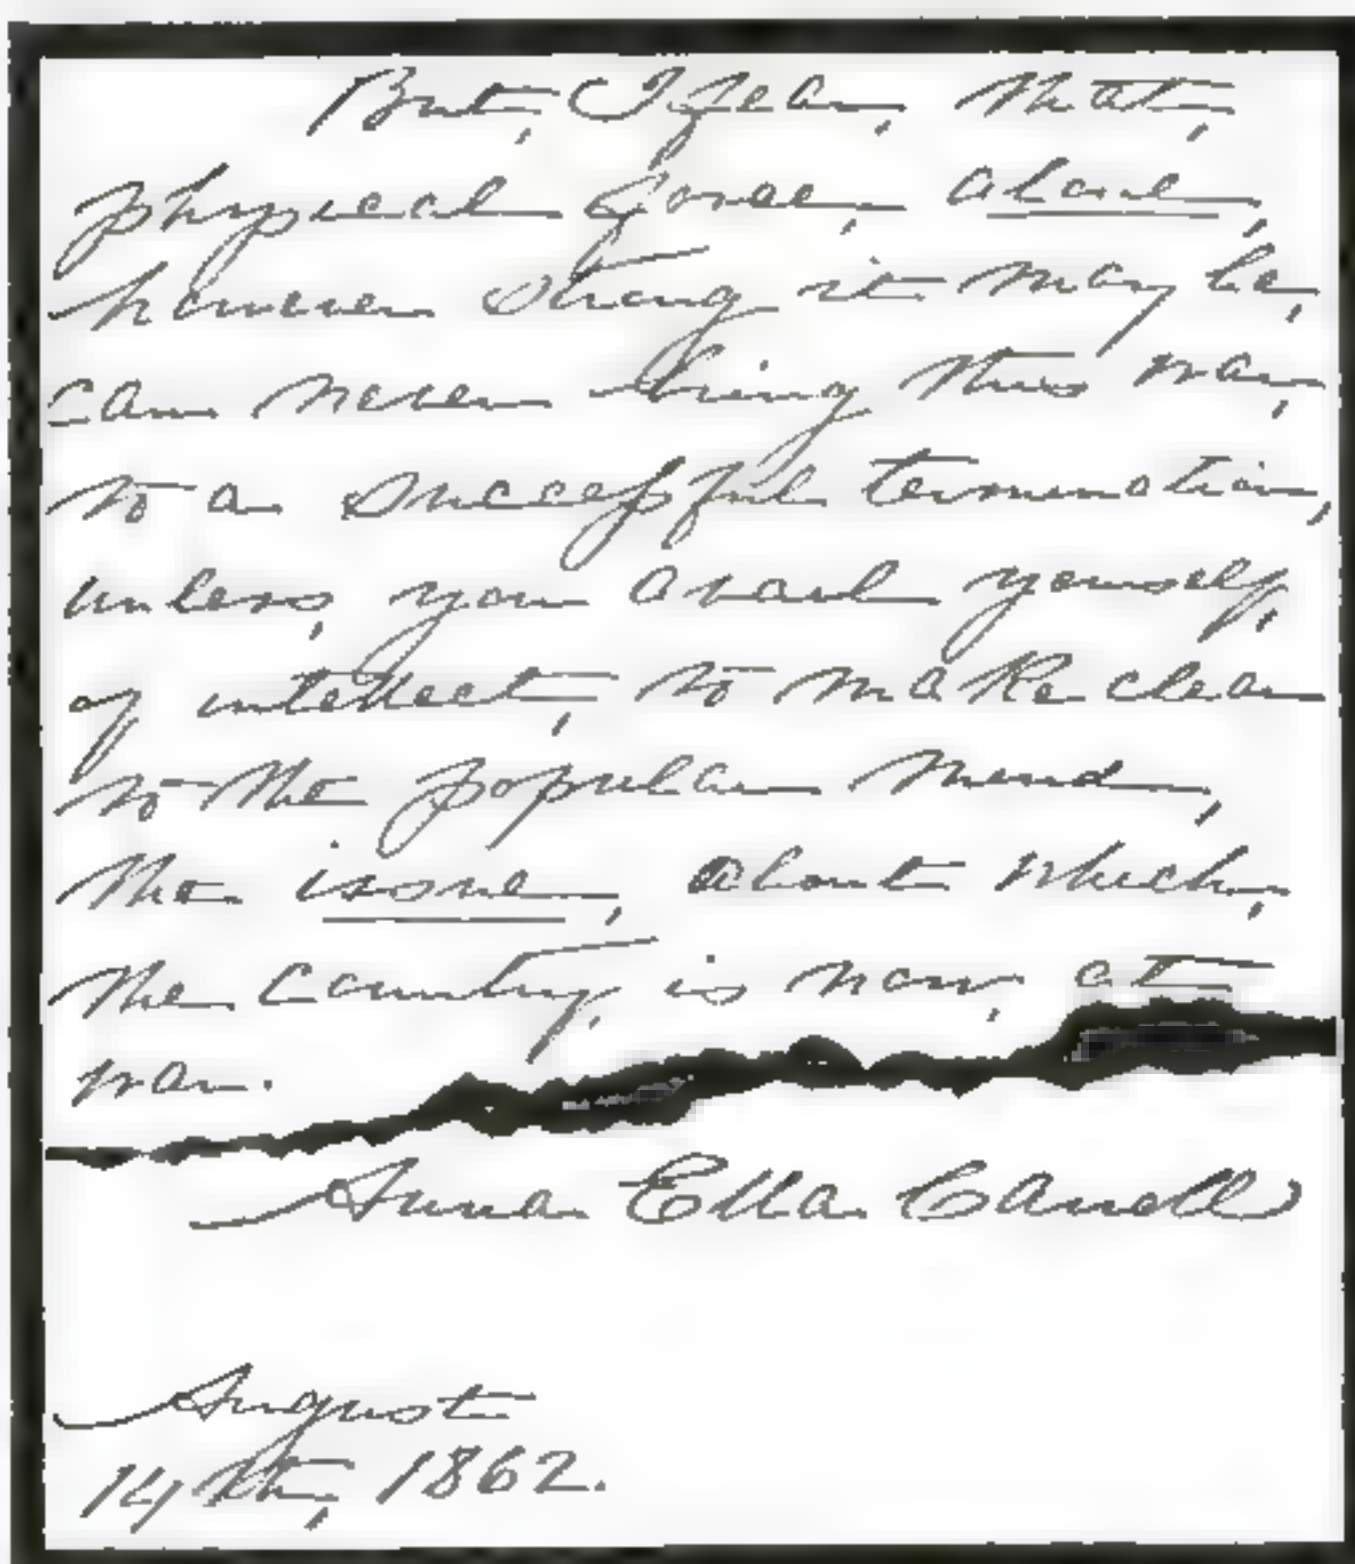 But, I fear, that,
physical force, alone,
however strong it may be,
can never bring this war,
to a successful termination,
unless, you avail yourself,
of intellect, to make clear
to the popular mind,
the issue, about which,
the country, is now, at
war.
Anna Ella Carroll
August
14th, 1862.